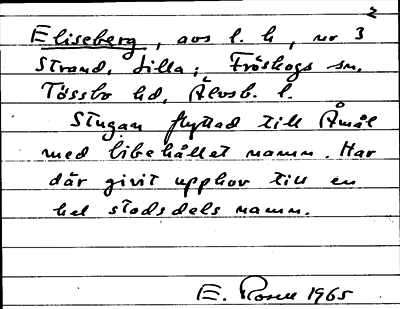 2
Eliseberg, avs l. h, nr 3
Strand, Lilla; Fröskogs sn.
Tössbo hd, Älvsb. l.
Stugan flyttad till Åmål
med bibehållet namn. Har
där givit upphov till en
hel stadsdels namn.
E. Rosell 1965